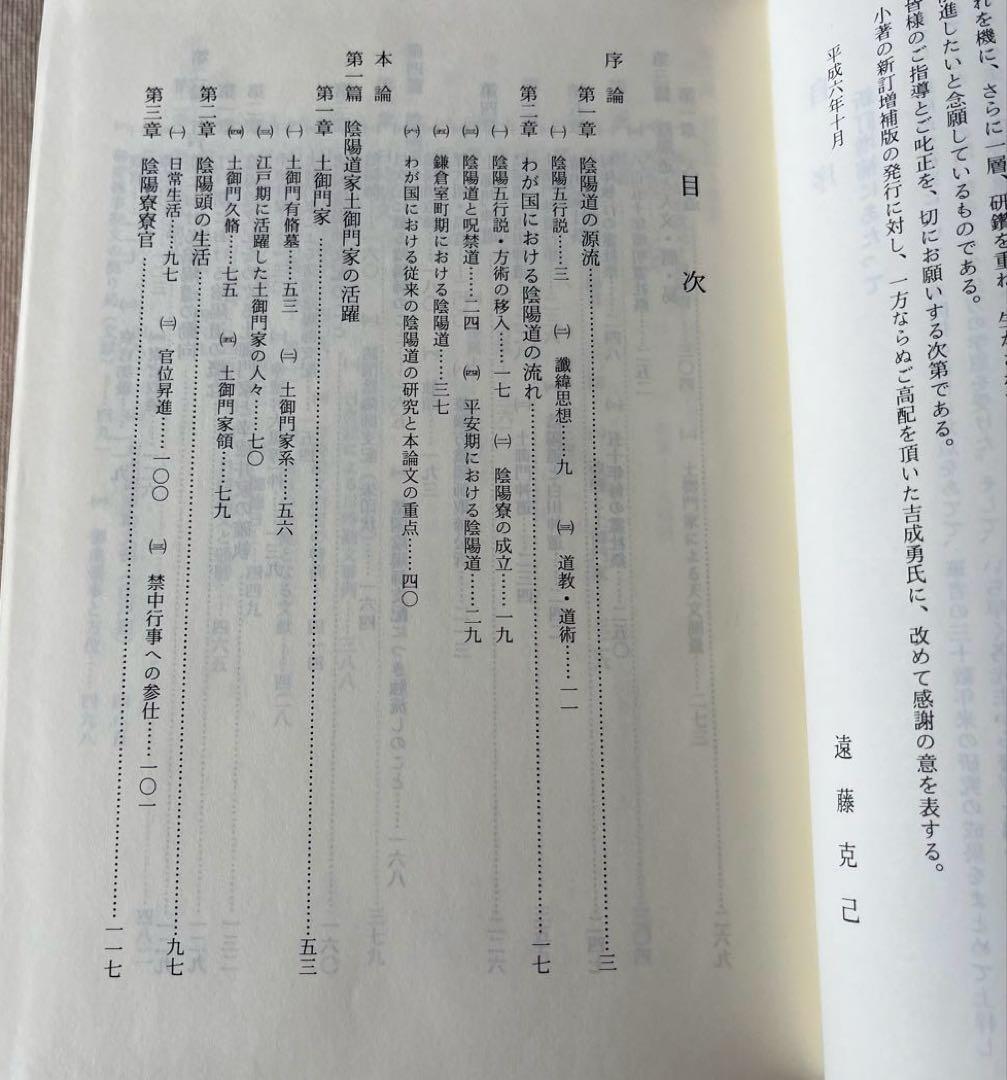 れを機に、さらに一層、研鑽を重ね、
進したいと念願しているものである。
皆様のご指導とご叱正を、切にお願いする次第である。
小著の新訂増補版の発行に対し、一方ならぬご高配を頂いた吉成勇氏に、改めて感謝の意を表する。
平成六年十月
遠藤克己
目次
序論
第一章 陰陽道の源流……三
㈠ 陰陽五行説……三 ㈡ 讖緯思想……九 ㈢ 道教・道術……一一
第二章 わが国における陰陽道の流れ……一七
㈠ 陰陽五行説・方術の移入……一七 ㈡ 陰陽寮の成立……一九
㈢ 陰陽道と呪禁道……二四 ㈣ 平安期における陰陽道……二九
㈤ 鎌倉室町期における陰陽道……三七
㈥ わが国における従来の陰陽道の研究と本論文の重点……四〇
本論
第一篇 陰陽道家土御門家の活躍
第一章 土御門家……五三
㈠ 土御門有脩墓……五三 ㈡ 土御門家系……五六
㈢ 江戸期に活躍した土御門家の人々……七〇
㈣ 土御門久脩……七五 ㈤ 土御門家領……七九
第二章 陰陽頭の生活……九七
㈠ 日常生活……九七 ㈡ 官位昇進……一〇〇 ㈢ 禁中行事への参仕……一〇一
第三章 陰陽寮寮官……一一七